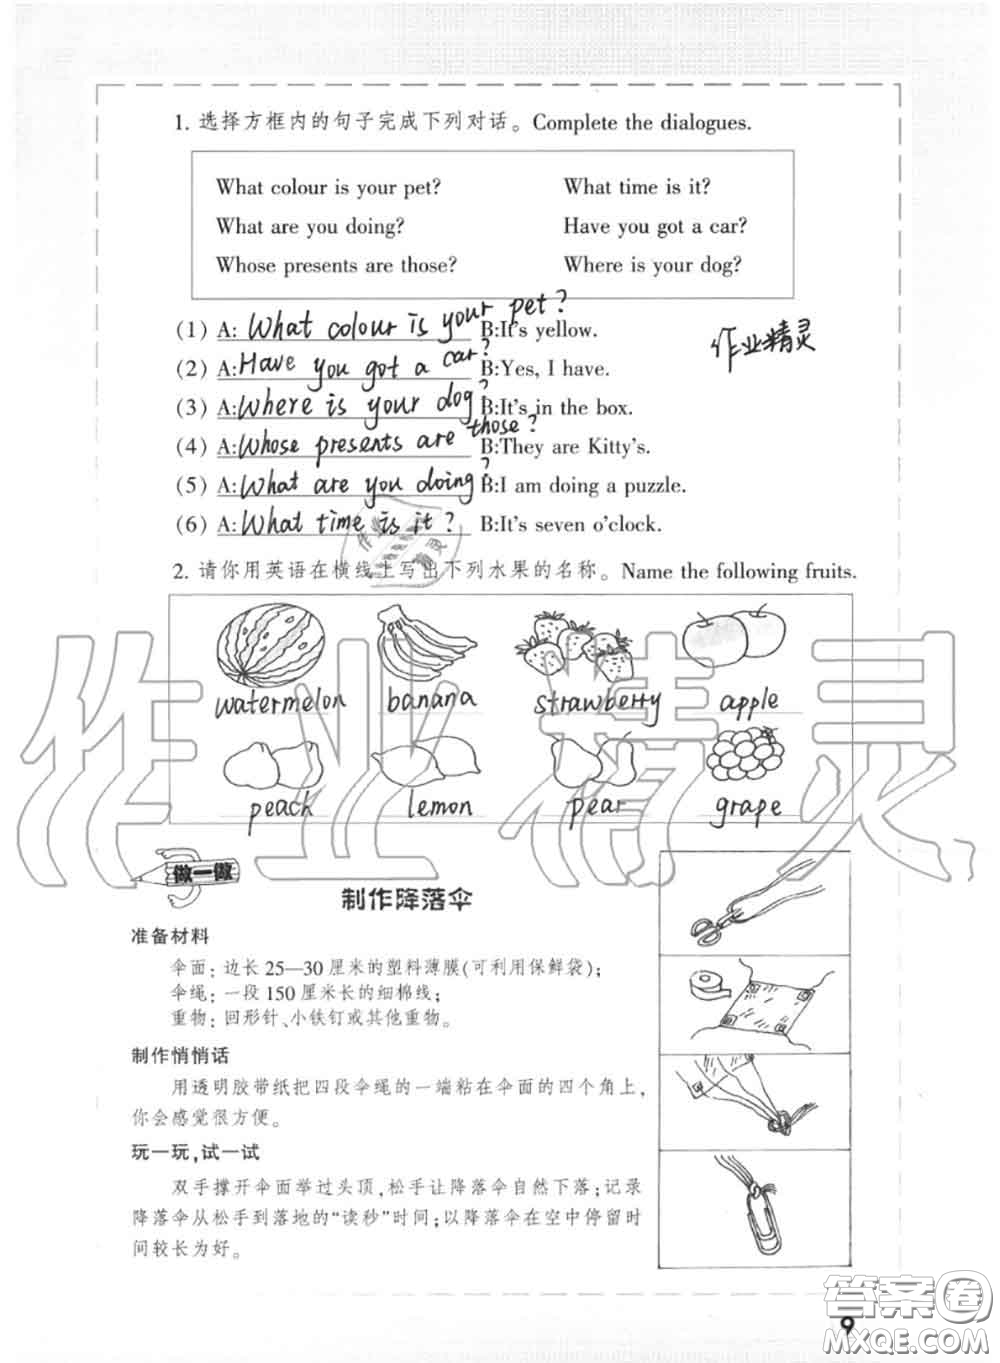 1. 选择方框内的句子完成下列对话。Complete the dialogues.
What colour is your pet? What time is it?
What are you doing? Have you got a car?
Whose presents are those? Where is your dog?
(1) A: What colour is your pet? B:It's yellow.
作业精灵
(2) A:Have you got a car? B:Yes, I have.
(3) A:Where is your dog? B:It's in the box.
(4) A:Whose presents are those? B:They are Kitty's.
(5) A:What are you doing? B:I am doing a puzzle.
(6) A:What time is it? B:It's seven o'clock.
2. 请你用英语在横线上写出下列水果的名称。Name the following fruits.
watermelon banana strawberry apple
peach lemon pear grape
作业精灵
做一做
制作降落伞
准备材料
伞面：边长 25—30 厘米的塑料薄膜(可利用保鲜袋)；
伞绳：一段 150 厘米长的细棉线；
重物：回形针、小铁钉或其他重物。
制作悄悄话
用透明胶带纸把四段伞绳的一端粘在伞面的四个角上，
你会感觉很方便。
玩一玩，试一试
双手撑开伞面举过头顶，松手让降落伞自然下落；记录
降落伞从松手到落地的“读秒”时间；以降落伞在空中停留时
间较长为好。
9
答案圈
MXQE.COM